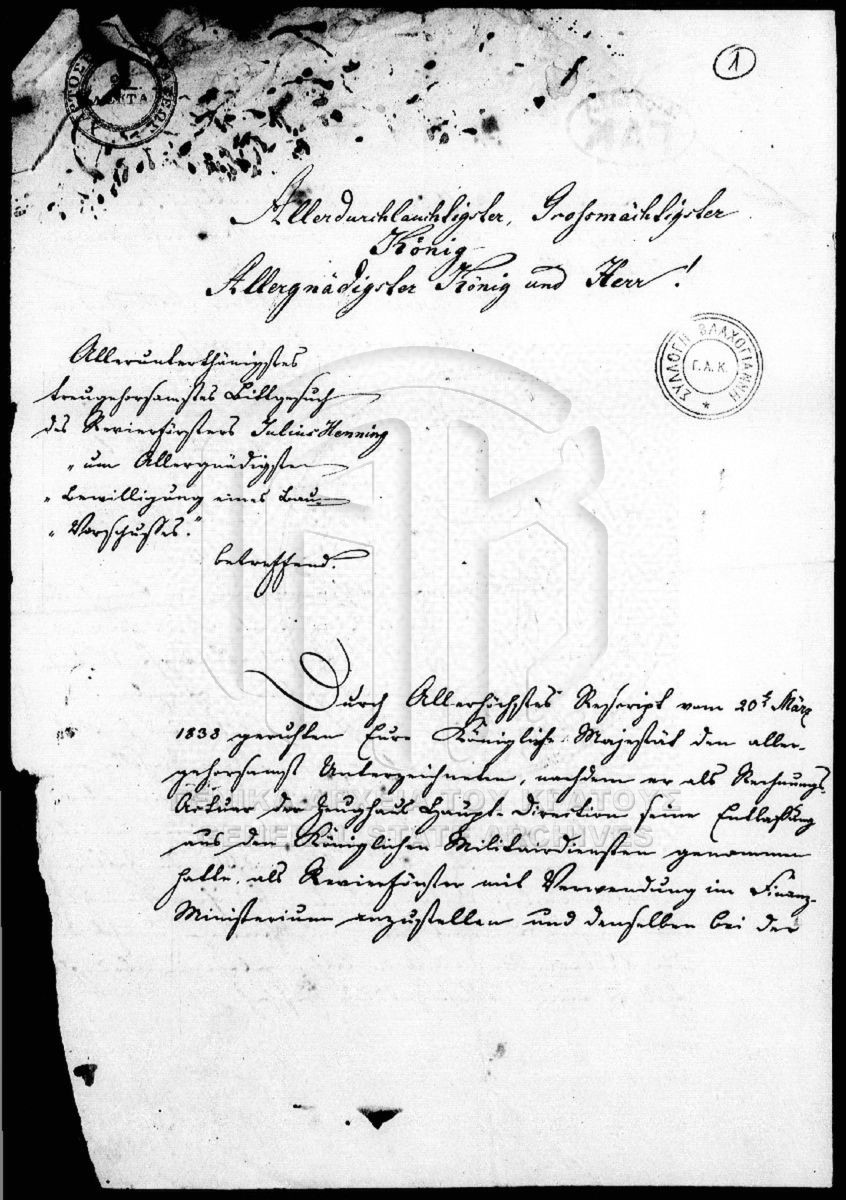 1
ΛΕΠΤΑ
Allerdurchlauchtigster, Grossmächtigster
König
Allergnädigster König und Herr!
ΣΥΛΛΟΓΗ ΒΛΑΧΟΓΙΑΝΝΗ
Γ.Α.Κ.
Allerunterthänigstes
treugehorsamstes Bittgesuch
des Revierförsters Julius Henning
"um Allergnädigsten
"Bewilligung eines Bau-
"Vorschusses."
betreffend.
Durch Allerhöchstes Rescript vom 20t März
1838 geruhten Eure Königliche Majestät den aller-
gehorsamst Unterzeichneten, nachdem er als Rechnungs-
Actuar der Zeughaus Haupt-Direction seine Entlassung
aus den Königlichen Militairdiensten genommen
hatte, als Revierförster mit Verwendung im Finanz-
Ministerium anzustellen und denselben bei der
ΓΕΝΙΚΑ ΑΡΧΕΙΑ ΤΟΥ ΚΡΑΤΟΥΣ
GENERAL STATE ARCHIVES